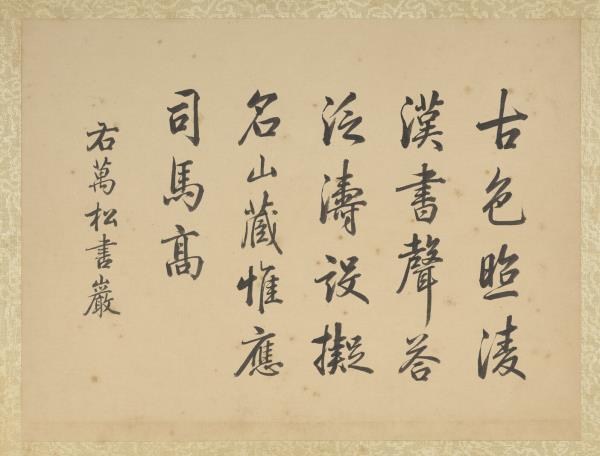 古色照淩
漢書聲答
泛濤設擬
名山蔵惟應
司馬高
右萬松書巖